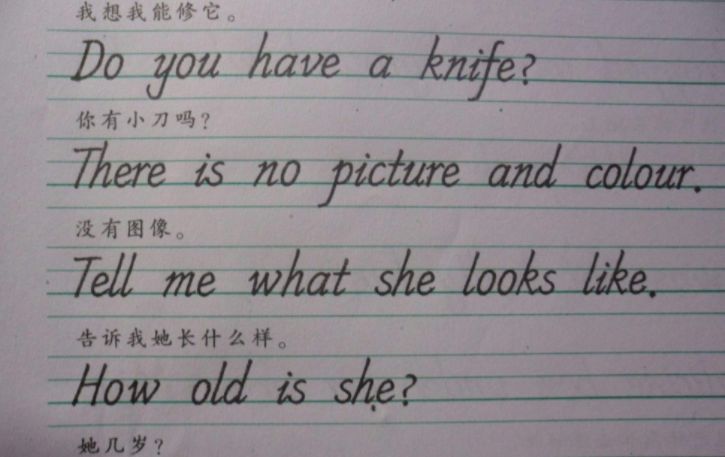 我想我能修它。
Do you have a knife?
你有小刀吗?
There is no picture and colour.
没有图像。
Tell me what she looks like.
告诉我她长什么样。
How old is she?
她几岁?